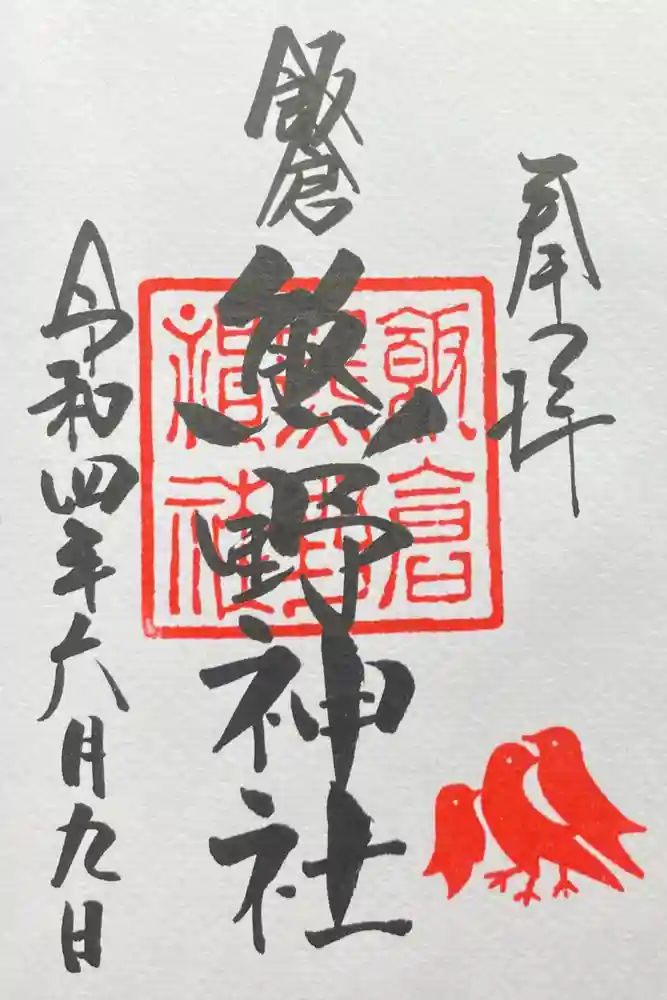 奉拝
飯倉
熊野神社
飯倉
熊野
神社
令和四年六月九日